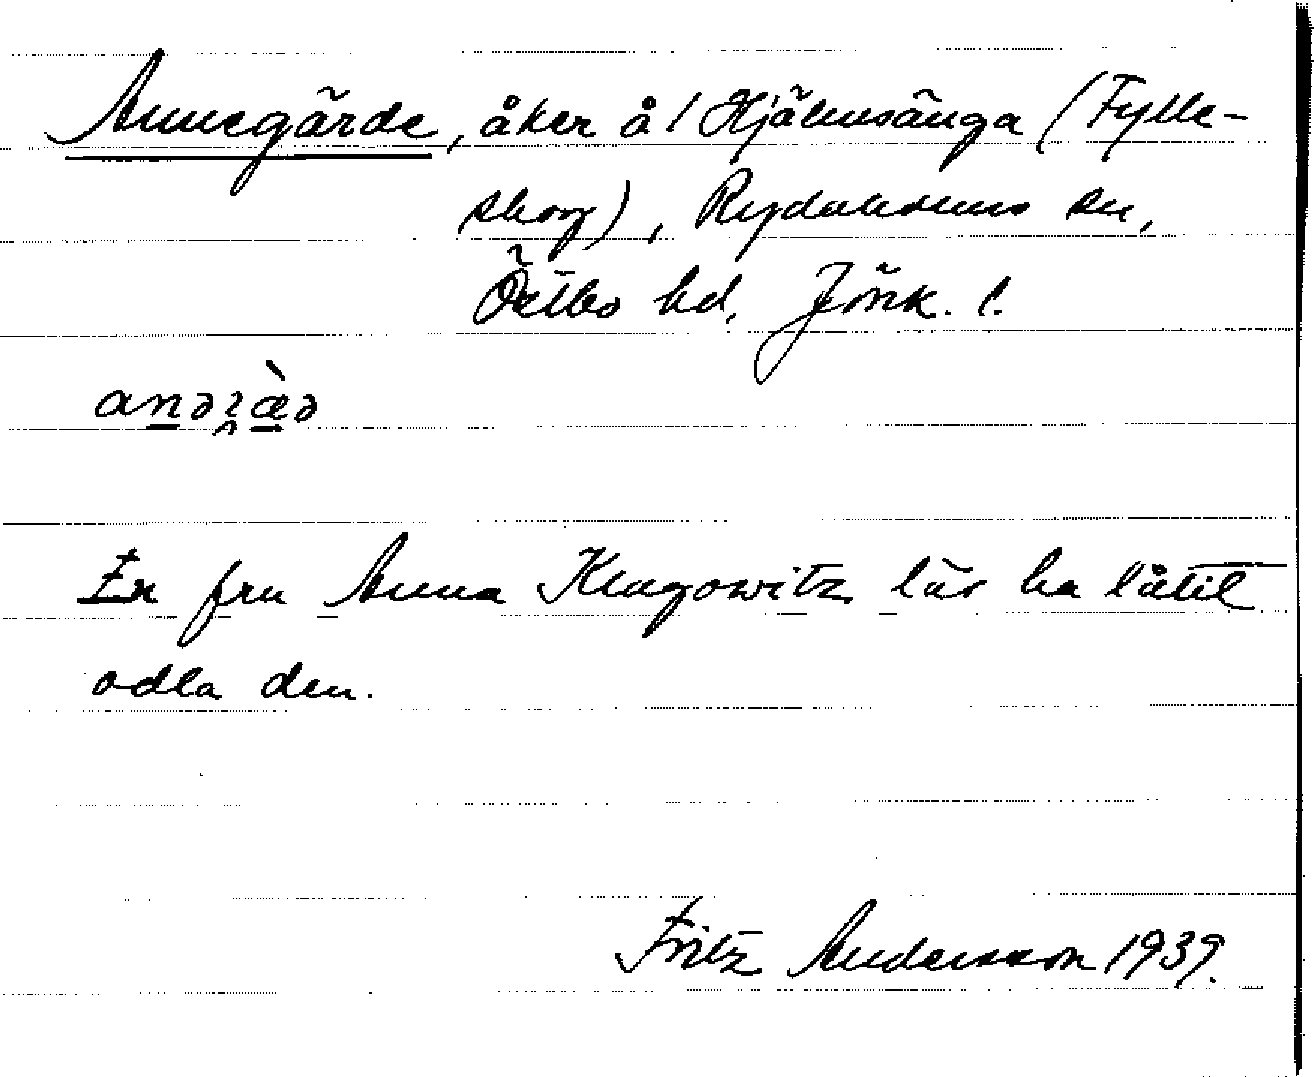 Annegärde, åker å / Hjälmsänga (Fylle-
skog), Rydaholms sn,
Östbo hd, Jönk. l.
anəɽæ̀ə
En fru Anna Klugowitz lär ha låtit
odla den.
Fritz Andersson 1939.